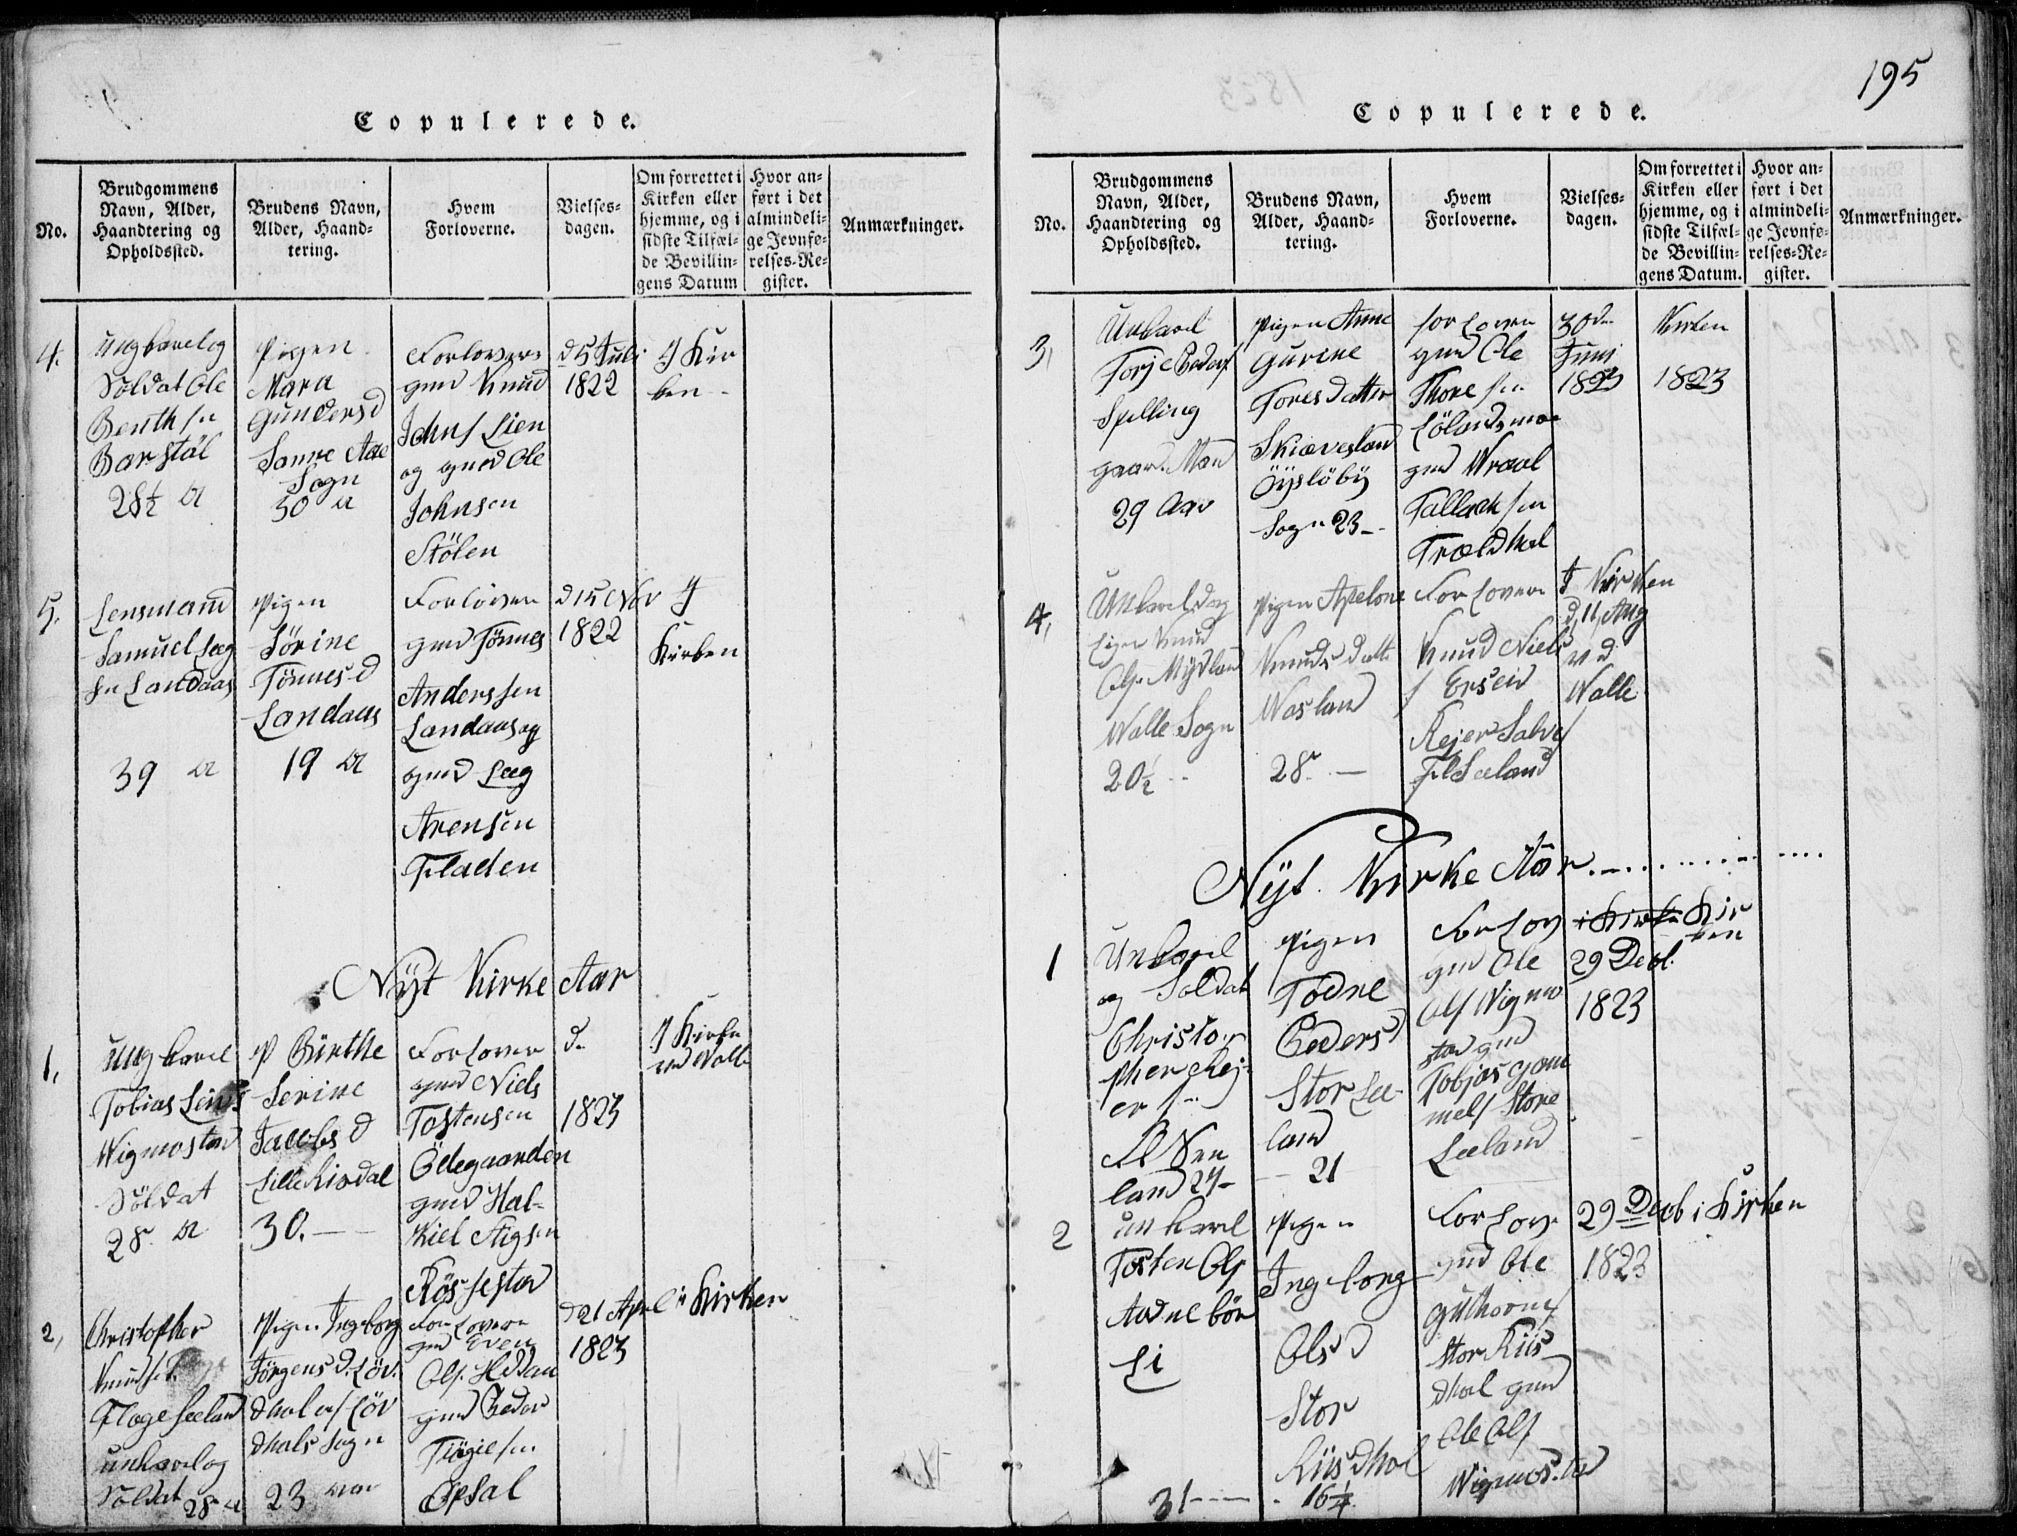 Copulerede.
No.
Brudgommens
Navn, Alder,
Haandtering og
Opholdssted.
Brudens Navn,
Alder, Haand-
tering.
Hvem
Forloverne.
Vielses-
dagen.
Om forrettet i
Kirken eller
hjemme, og i
sidste Tilfæl-
de Bevillin-
gens Datum
Hvor an-
ført i det
almindeli-
ge Jevnfø-
relses-Re-
gister.
Anmærkninger.
4.
Ungkarl og
Soldat Ole
Benth sn
Barstöl
28½ A
Pigen
Mara
Gundersd
Samme Aae
Sogn
30 A
Forlovere
gmd Knud
Johns Lien
og gmd Ole
Johnsen
Stölen
d 5 Juli
1822
I Kir
ken
5.
Lensmand
Samuel Leeg
sn Landaas
39 A
Pigen
Sörine
Tönnes d
Landaas
19 A
Forlovere
gmd Tönnes
Anderssen
Landaas og
gmd Leeg
Arensen
Fladen
d 15 Nov
1822
I
Kirken
Nyt Kirke Aar
1,
Ung karl
Tobias
Wigmostad
Soldat
28 A
P Birthe
Serine
Jacobs d
Lille Risdal
30.
Forlover
gmd Niels
Tostensen
Ödegaarden
gmd Hal-
kiel Stigsen
Rössestad
d.
1823
I Kirken
ved Walle
2,
Christopher
Knuds.
Flage Seeland
unkarl og
Soldat 28 A
Pigen Ingeborg
Jörgens d. Löv-
dhal af Löv
dhals Sogn
23 aar
Forlovere
gmd Even
Ols.
gmd Peder
Opsal
d 21 April i Kirken
1823
195
Copulerede.
No.
Brudgommens
Navn, Alder,
Haandtering og
Opholdssted.
Brudens Navn,
Alder, Haand-
tering.
Hvem
Forloverne.
Vielses-
dagen.
Om forrettet i
Kirken eller
hjemme, og i
sidste Tilfæl-
de Bevillin-
gens Datum.
Hvor an-
ført i det
almindeli-
ge Jevnfø-
relses-Re-
gister.
Anmærkninger.
3,
Unkarl
Torje Peders
Spilling
gaard Mand
29 Aar
Pigen Anne
Gurine
Tores datter
Skiævesland
Öyslöby
Sogn 23-
forlover
gmd Ole
Thore sn
gmd Wraal
Tallach sn
Trældhal
30 d
Juni
1823
Kirken
1823
4,
Knud
Ols. Mydland
Walle Sogn
20½
Pigen Apelone
Knuds datt
Wasland
28.
Forlovere
Knud Niels
s Erseid
Rejer Salves
Fl Seeland
I Kirken
d, 11, Aug
ved
Walle
Nyt Kirke Aar
1
Unkarl
og Soldat
Christo-
pher Rej-
er s
land 27-
Pigen
Todne
Peders d
Stor See-
land
21
Forlov
gmd Ole
Ols Wigmo
stad gmd
Tobjas Gam
mels Store
Seeland
i Kirke Kir
ken
29 Decb.
1823
2
unkarl
Tosten Ols
Aadnebör
Li
31
Pigen
Ingeborg
Ols d
Stor
Riisdhal
16¼
Forlov
gmd Ole
Guthorms
Stor Riis
dhal gmd
Ole Ols
Wigmostad
29 Decb i Kirken
1823